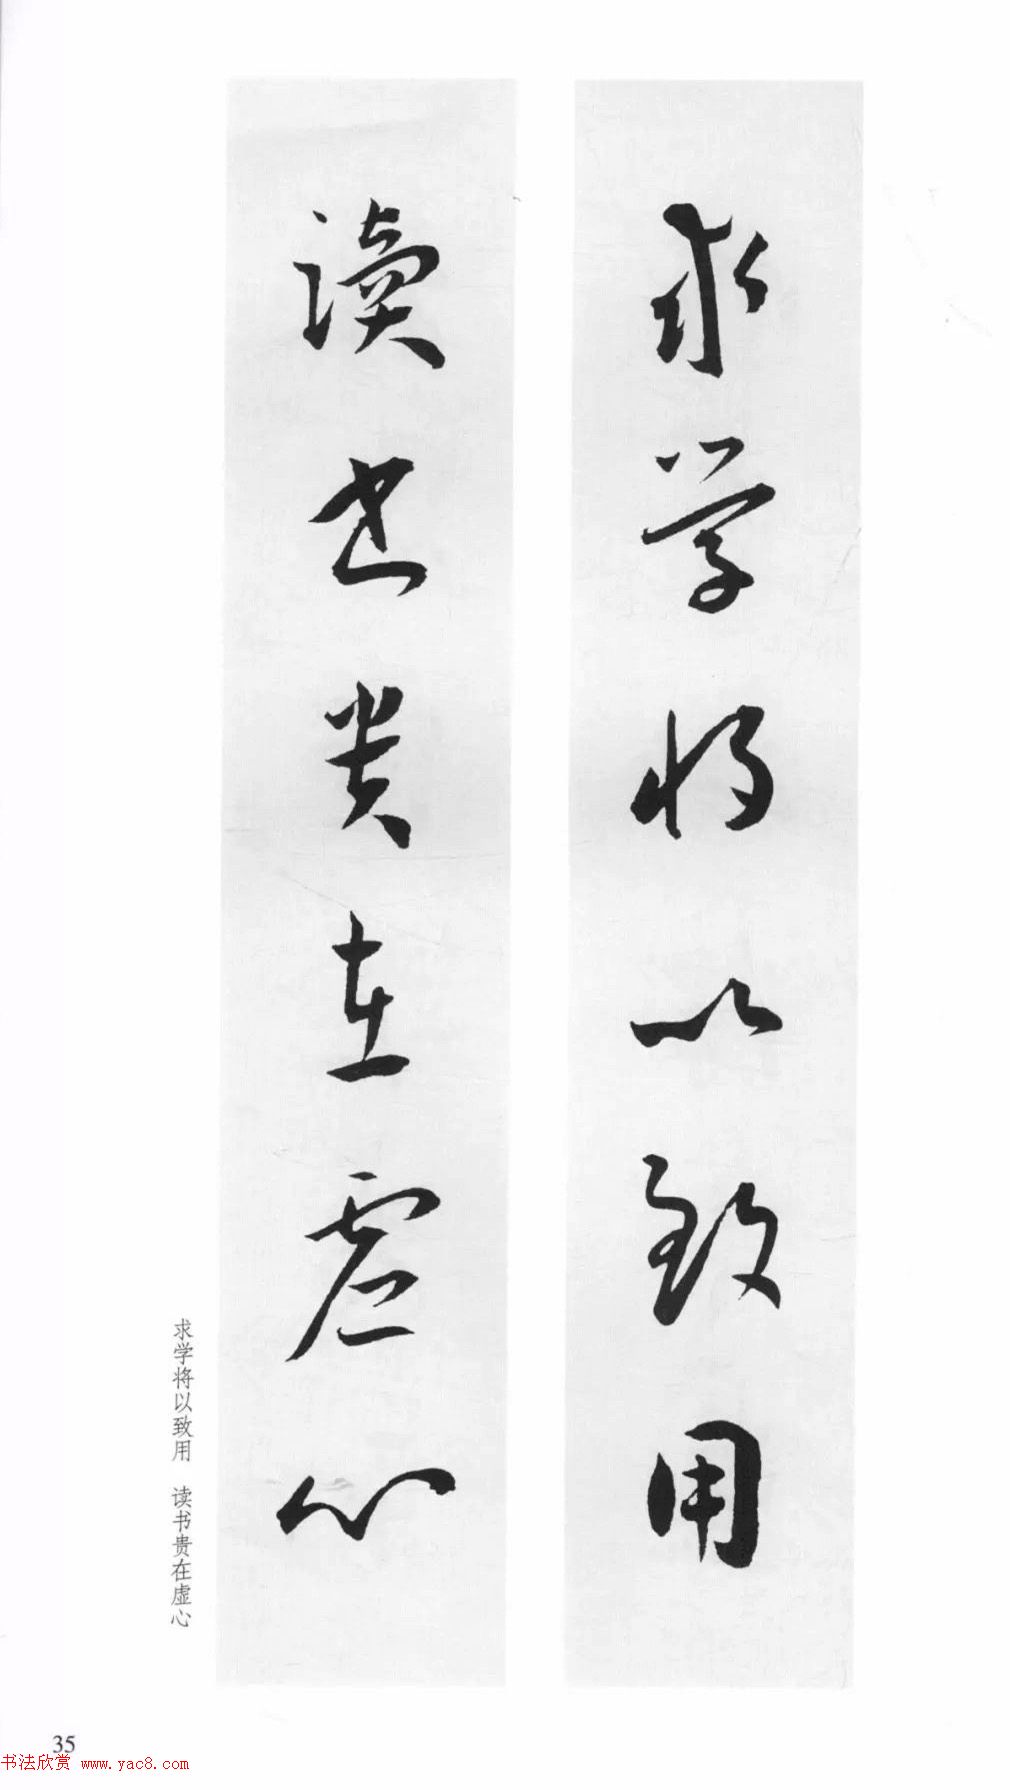 求学将以致用
读书贵在虚心
求学将以致用　读书贵在虚心
35
书法欣赏 www.yac8.com